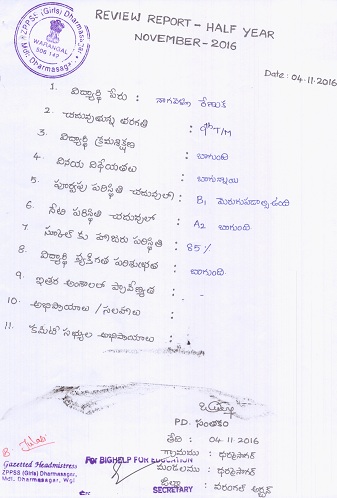 ZPPSS (Girls) Dharmasagar
WARANGAL
506 142
Mdl. Dharmasagar
REVIEW REPORT - HALF YEAR
NOVEMBER - 2016
Date: 04.11.2016
1. విద్యార్థి పేరు : నాగవెళ్లి రేణుక
2. చదువుతున్న తరగతి : 9th T/M
3. విద్యార్థి క్రమశిక్షణ : బాగుంది
4. వినయ విధేయతలు : బాగున్నాయి
5. పూర్వపు పరిస్థితి చదువుల్లో : B1 మెరుగుపడాల్సి ఉంది
6. నేటి పరిస్థితి చదువుల్లో : A2 బాగుంది
7. స్కూల్ కు హాజరు పరిస్థితి : 85%
8. విద్యార్థి వ్యక్తిగత పరిశుభ్రత : బాగుంది
9. ఇతర అంశాలలో ప్రావీణ్యత :
10. అభిప్రాయాలు / సలహాలు :
11. కమిటీ సభ్యుల అభిప్రాయాలు :
P.D. సంతకం
తేది : 04.11.2016
గ్రామము : ధర్మసాగర్
మండలము : ధర్మసాగర్
జిల్లా : వరంగల్ అర్బన్
Gazetted Headmistress
ZPPSS (Girls) Dharmasagar,
Mdl. Dharmasagar, Wgl
For BIGHELP FOR EDUCATION
SECRETARY